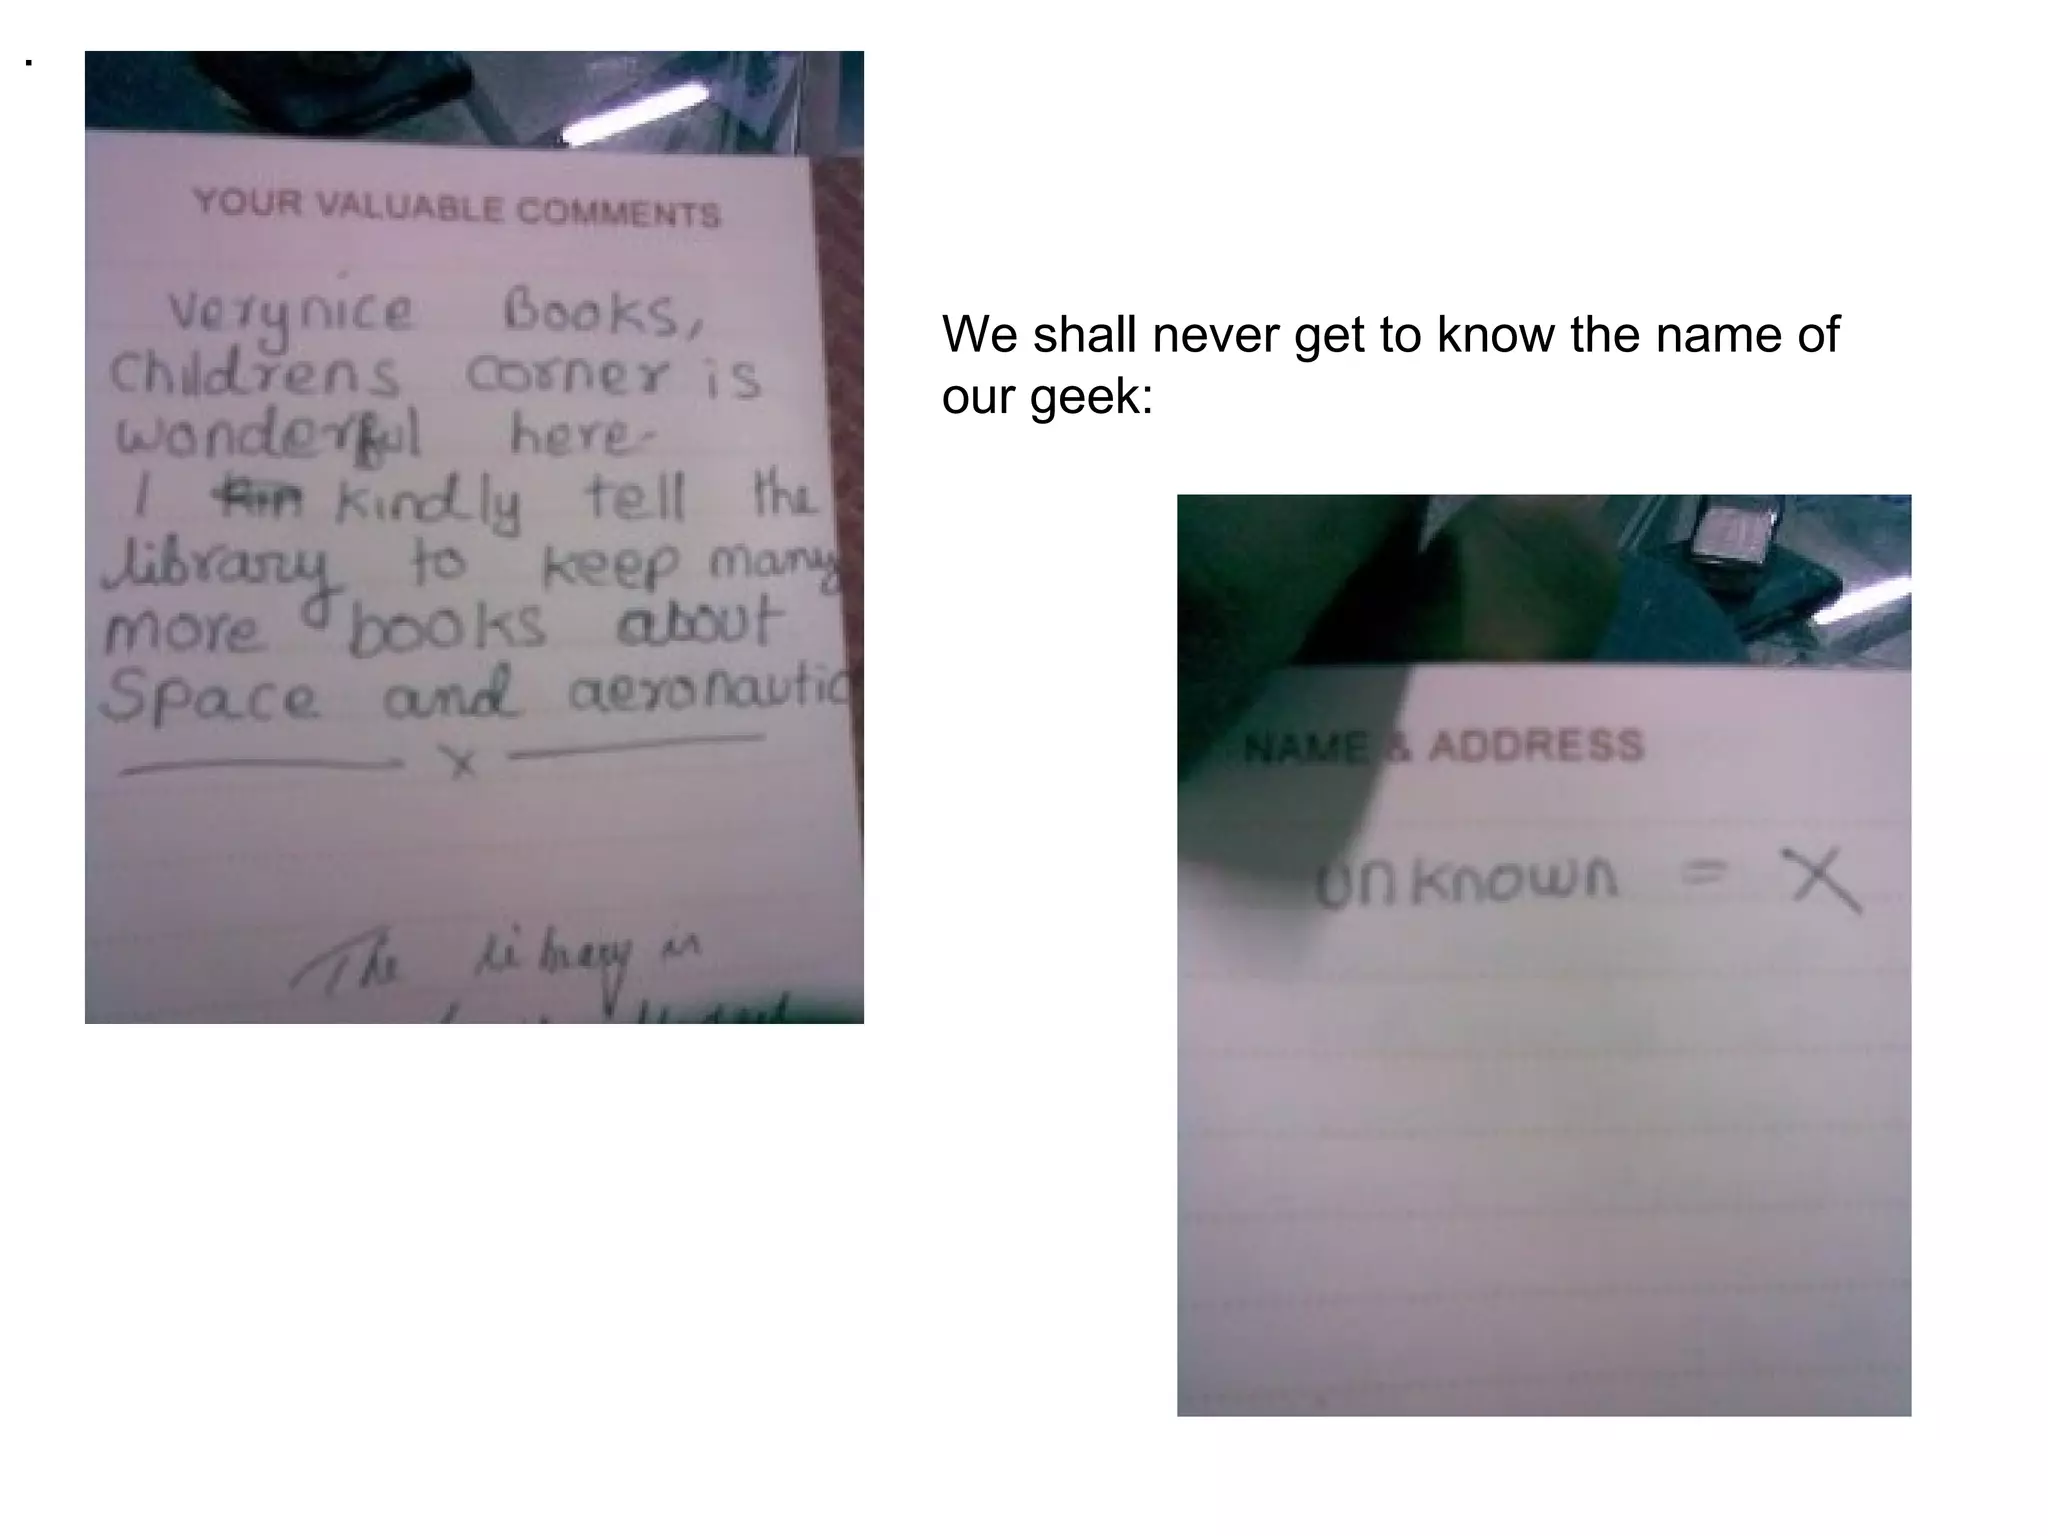 .
YOUR VALUABLE COMMENTS
Verynice Books,
Childrens corner is
wonderful here
I kindly tell the
library to keep many
more books about
Space and aeronautic
x
The library is
We shall never get to know the name of
our geek:
NAME & ADDRESS
unknown = X